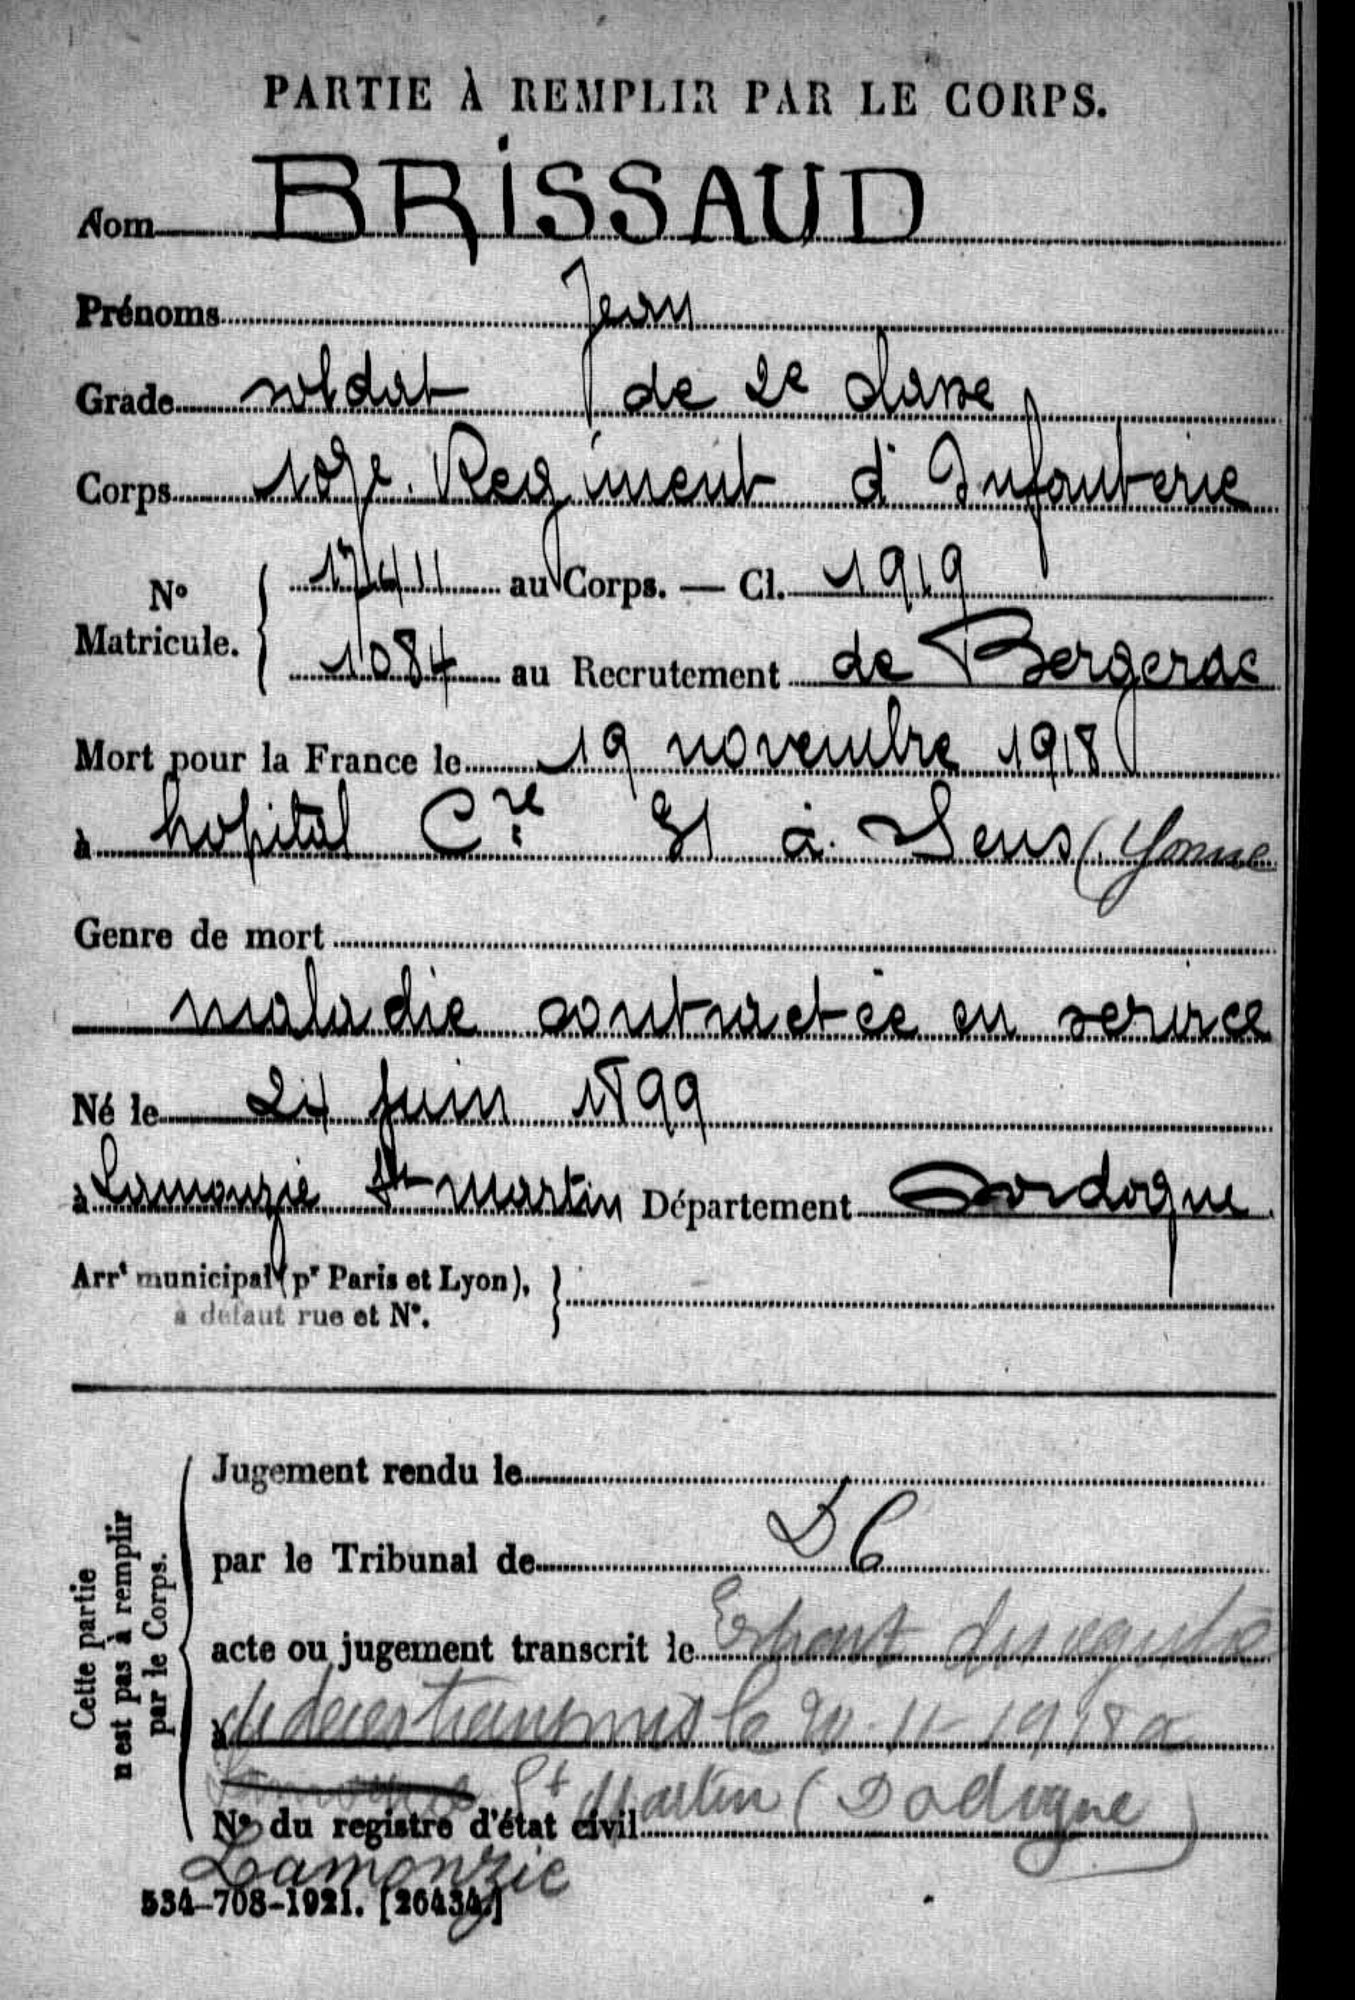 PARTIE À REMPLIR PAR LE CORPS.
Nom BRISSAUD
Prénoms Jean
Grade soldat de 2e classe
Corps 107e. Regiment d'Infanterie
N° Matricule. 17411 au Corps. — Cl. 1919
1084 au Recrutement de Bergerac
Mort pour la France le 19 novembre 1918
à hopital Cre 31 à Sens (Yonne
Genre de mort
maladie contractée en service
Né le 24 juin 1899
à Lamonzie St martin Département Dordogne
Arrt municipal (pr Paris et Lyon),
à défaut rue et N°.
Cette partie
n'est pas à remplir
par le Corps.
Jugement rendu le
par le Tribunal de DC
acte ou jugement transcrit le Extrait du registre
à de deces transmis le 20-11-1918 a
St Martin (Dodogne)
N° du registre d'état civil
Lamonzie
534-708-1921. [26434.]